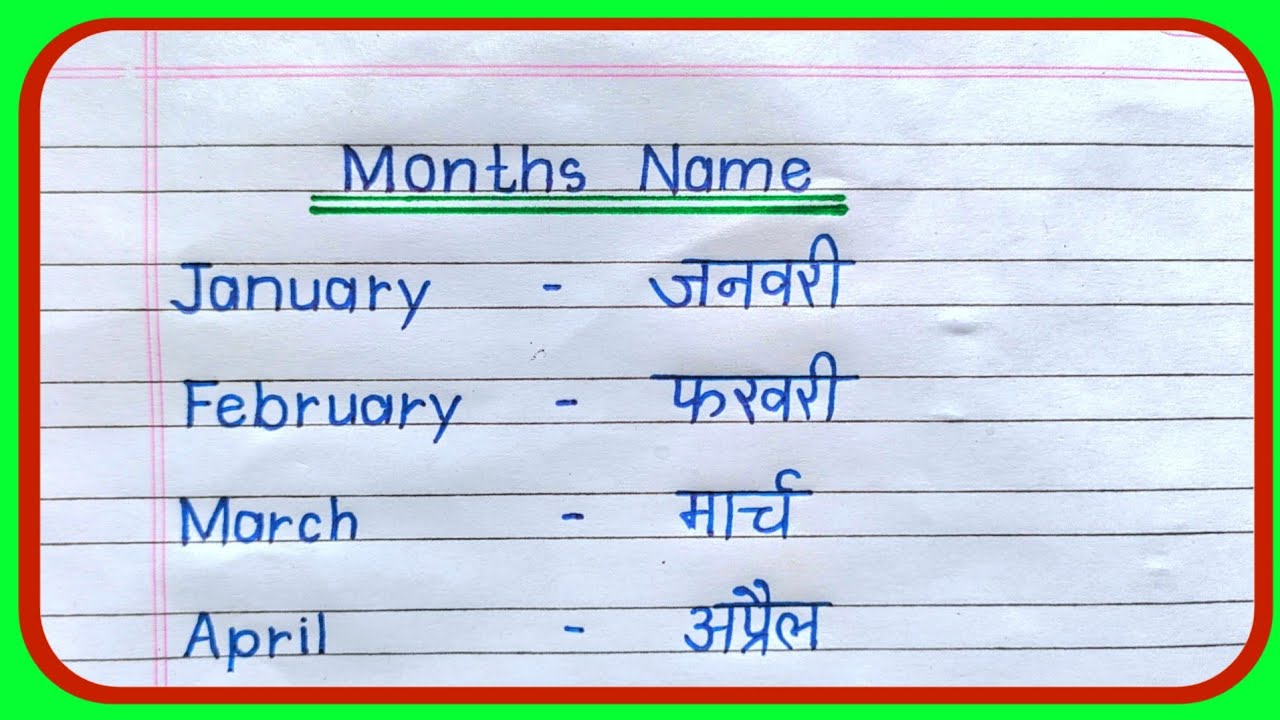 Months Name
January - जनवरी
February - फरवरी
March - मार्च
April - अप्रैल